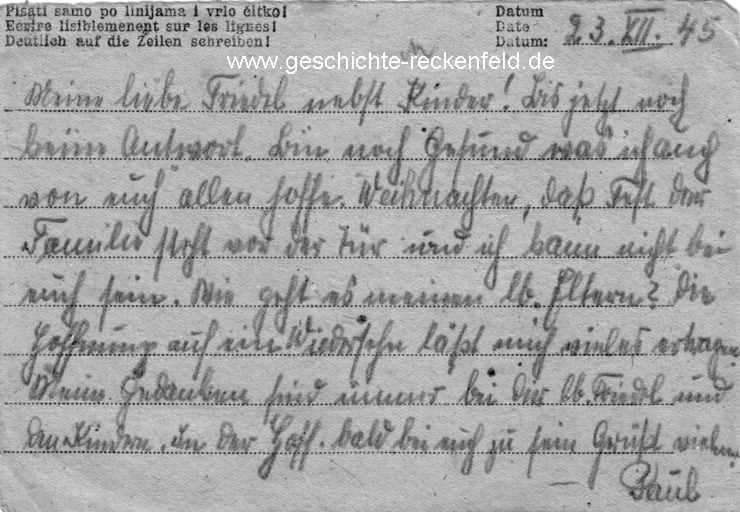 Pisati samo po linijama i vrlo čitko!
Ecrire lisiblemenent sur les lignes!
Deutlich auf die Zeilen schreiben!
Datum
Date
Datum: 23. XII. 45
www.geschichte-reckenfeld.de
Meine liebe Friedel nebst Kinder! Bis jetzt noch
keine Antwort. Bin noch Gesund was ich auch
von euch allen hoffe. Weihnachten, daß Fest der
Familie steht vor der Tür und ich kann nicht bei
euch sein. Wie geht es meinen lb. Eltern? Die
Hoffnung auf ein Wiedersehn läßt mich vieles ertragen.
Meine Gedanken sind immer bei dir lb. Friedel und
den Kindern. In der Hoff. bald bei euch zu sein Grüßt vielm.
Paul